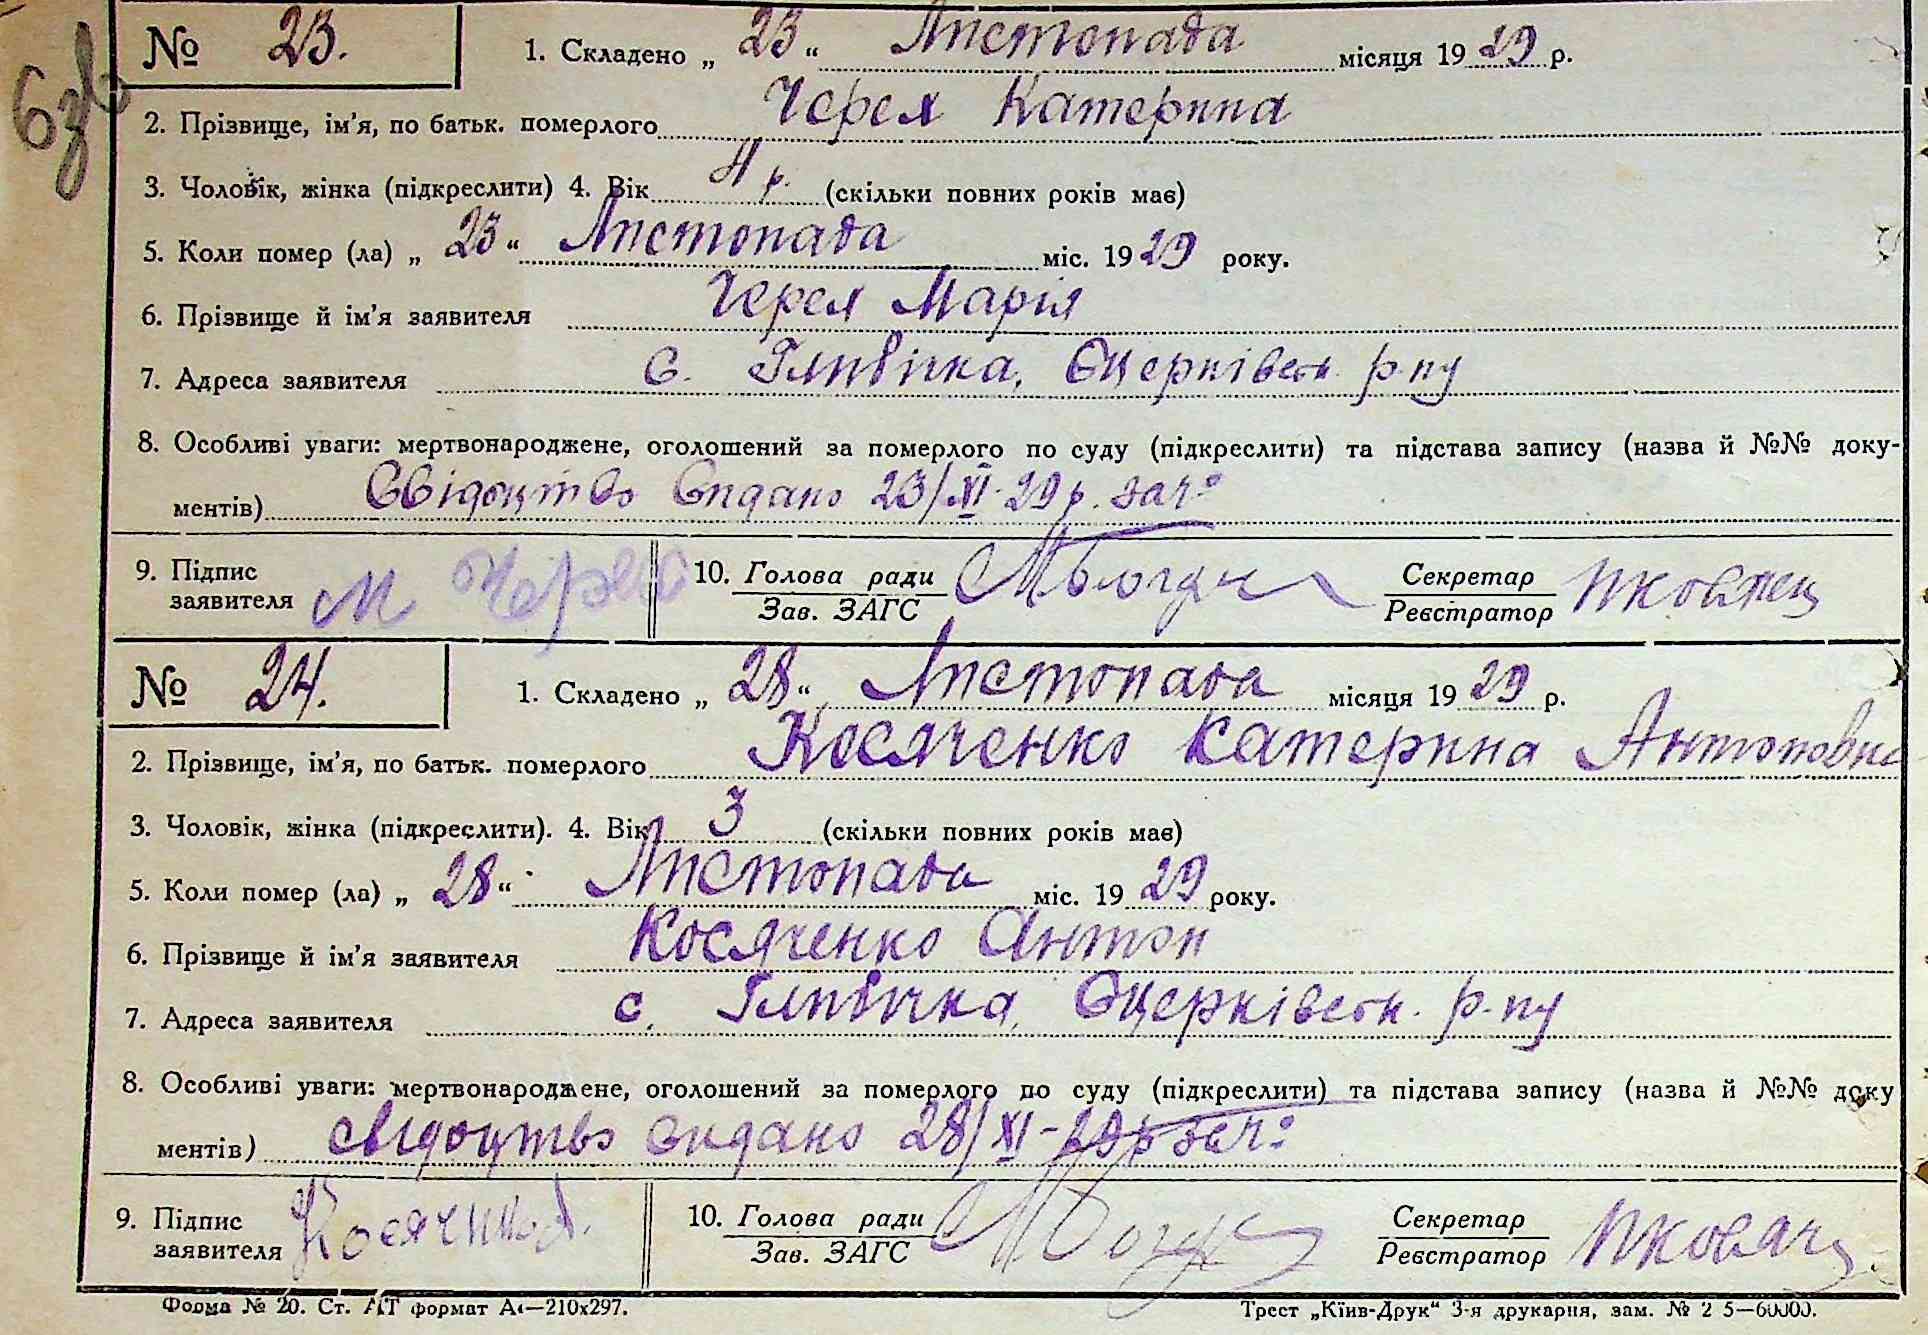 № 23. 1. Складено „ 23 “ Листопада місяця 19 29 р.
2. Прізвище, ім'я, по батьк. померлого Черея Катерина
3. Чоловік, жінка (підкреслити) 4. Вік 4 р. (скільки повних років має)
5. Коли помер (ла) „ 23 “ Листопада міс. 19 29 року.
6. Прізвище й ім'я заявителя Черея Марія
7. Адреса заявителя с. Глибичка, Бцерківськ. р-ну
8. Особливі уваги: мертвонароджене, оголошений за померлого по суду (підкреслити) та підстава запису (назва й №№ доку-
ментів) Свідоцтво видано 23/XI-29 р. за ч°
9. Підпис заявителя М Черея 10. Голова ради Зав. ЗАГС Секретар Реєстратор
№ 24. 1. Складено „ 28 “ Листопада місяця 19 29 р.
2. Прізвище, ім'я, по батьк. померлого Косяченко Катерина Антоновна
3. Чоловік, жінка (підкреслити). 4. Вік 3 (скільки повних років має)
5. Коли помер (ла) „ 28 “ Листопада міс. 19 29 року.
6. Прізвище й ім'я заявителя Косяченко Антон
7. Адреса заявителя с. Глибичка, Бцерківськ. р-ну
8. Особливі уваги: мертвонароджене, оголошений за померлого по суду (підкреслити) та підстава запису (назва й №№ доку
ментів) свідоцтво видано 28/XI-29 р за ч°
9. Підпис заявителя 10. Голова ради Зав. ЗАГС Секретар Реєстратор
Форма № 20. Ст. АТ формат А4—210х297. Трест „Київ-Друк“ 3-я друкарня, зам. № 2 5—60000.